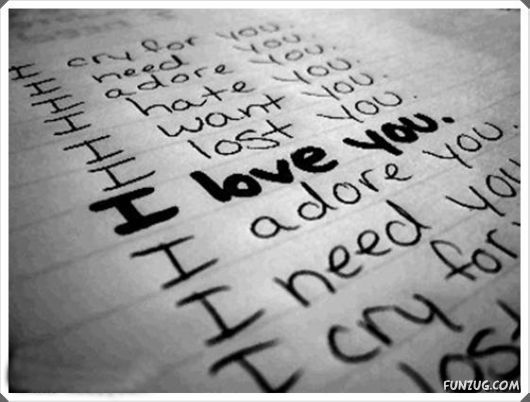 I cry for you.
I need you.
I adore you.
I hate you.
I want you.
I lost you.
I love you.
I adore you.
I need you
I cry for
lost
FUNZUG.COM